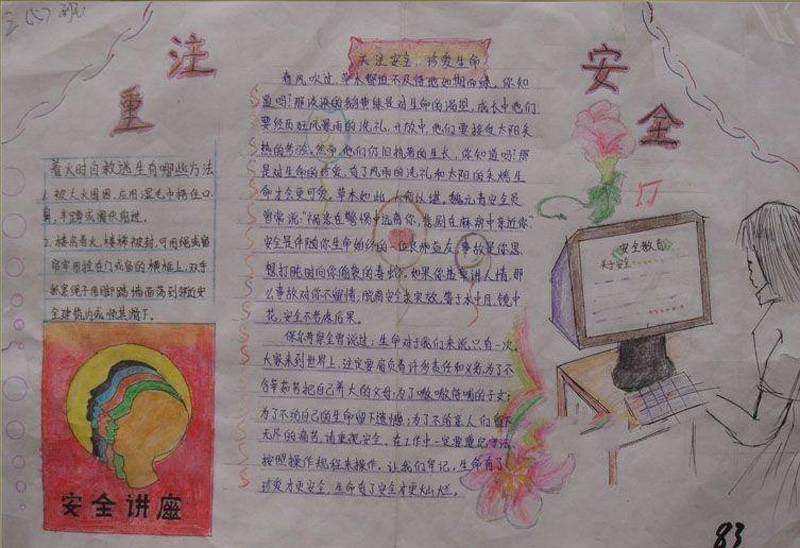 注
重
安
全
着火时自救逃生有哪些方法
1. 被大火围困,应用湿毛巾捂住口
鼻,半蹲或匍伏前进。
2. 楼房着火,楼梯被封,可用绳或窗
帘牢固拴在门或窗的横框上,双手
抓紧绳子用脚蹬墙面荡到邻近安
全建筑内或顺其滑下。
安全讲座
关注安全,珍爱生命
春风吹过,草木都迫不及待地如期而绿,你知
道吗?那泼泼的新黄绿是对生命的渴望,成长中他们
要经历狂风暴雨的洗礼,开放中,他们要接受太阳炙
热的考验,然而,他们仍旧执着的生长,你知道吗?那
是对生命的珍爱,有了风雨的洗礼和太阳的炙烤生
命才会更可爱。草木如此,人何以堪,魏元
曾常说:"祸患在警惕中远离你,悲剧在麻痹中亲近你。
安全是伴随你生命始终的一位良师益友,事故是你思
想打盹时向你偷袭的毒蛇。如果你违章讲人情,那
么事故对你不留情;脱离安全求实效,等于水中月,镜中
花,安全不考虑后果。
保尔
曾说过:生命对于我们来说,只有一次。
大家来到世界上,注定要肩负着许多责任和义务,为了
含辛茹苦把自己养大的父母;为了嗷嗷待哺的子女;
为了不给自己的生命留下遗憾;为了不给亲人们留下
无尽的痛苦,请重视安全。在工作中一定要遵纪守法
按照操作规程来操作。让我们牢记,生命有了
珍爱才更安全,生命有了安全才更灿烂。
安全教育
关于安全
83